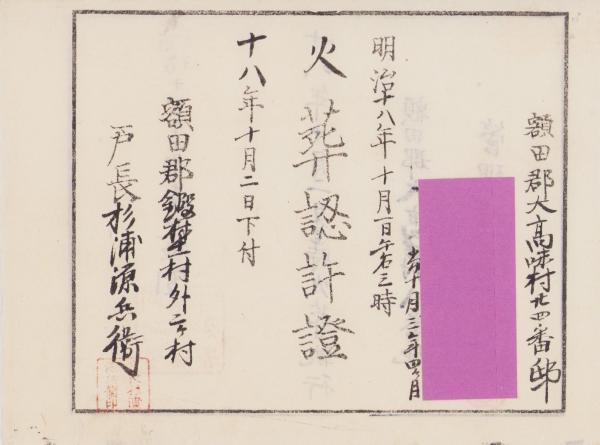 額田郡大高味村廿四番邸
当十月三年四ヶ月
明治十八年十月一日午后三時
火葬認許證
十八年十月二日下付
額田郡鍛埜村外六ヶ村
戸長杉浦源兵衛